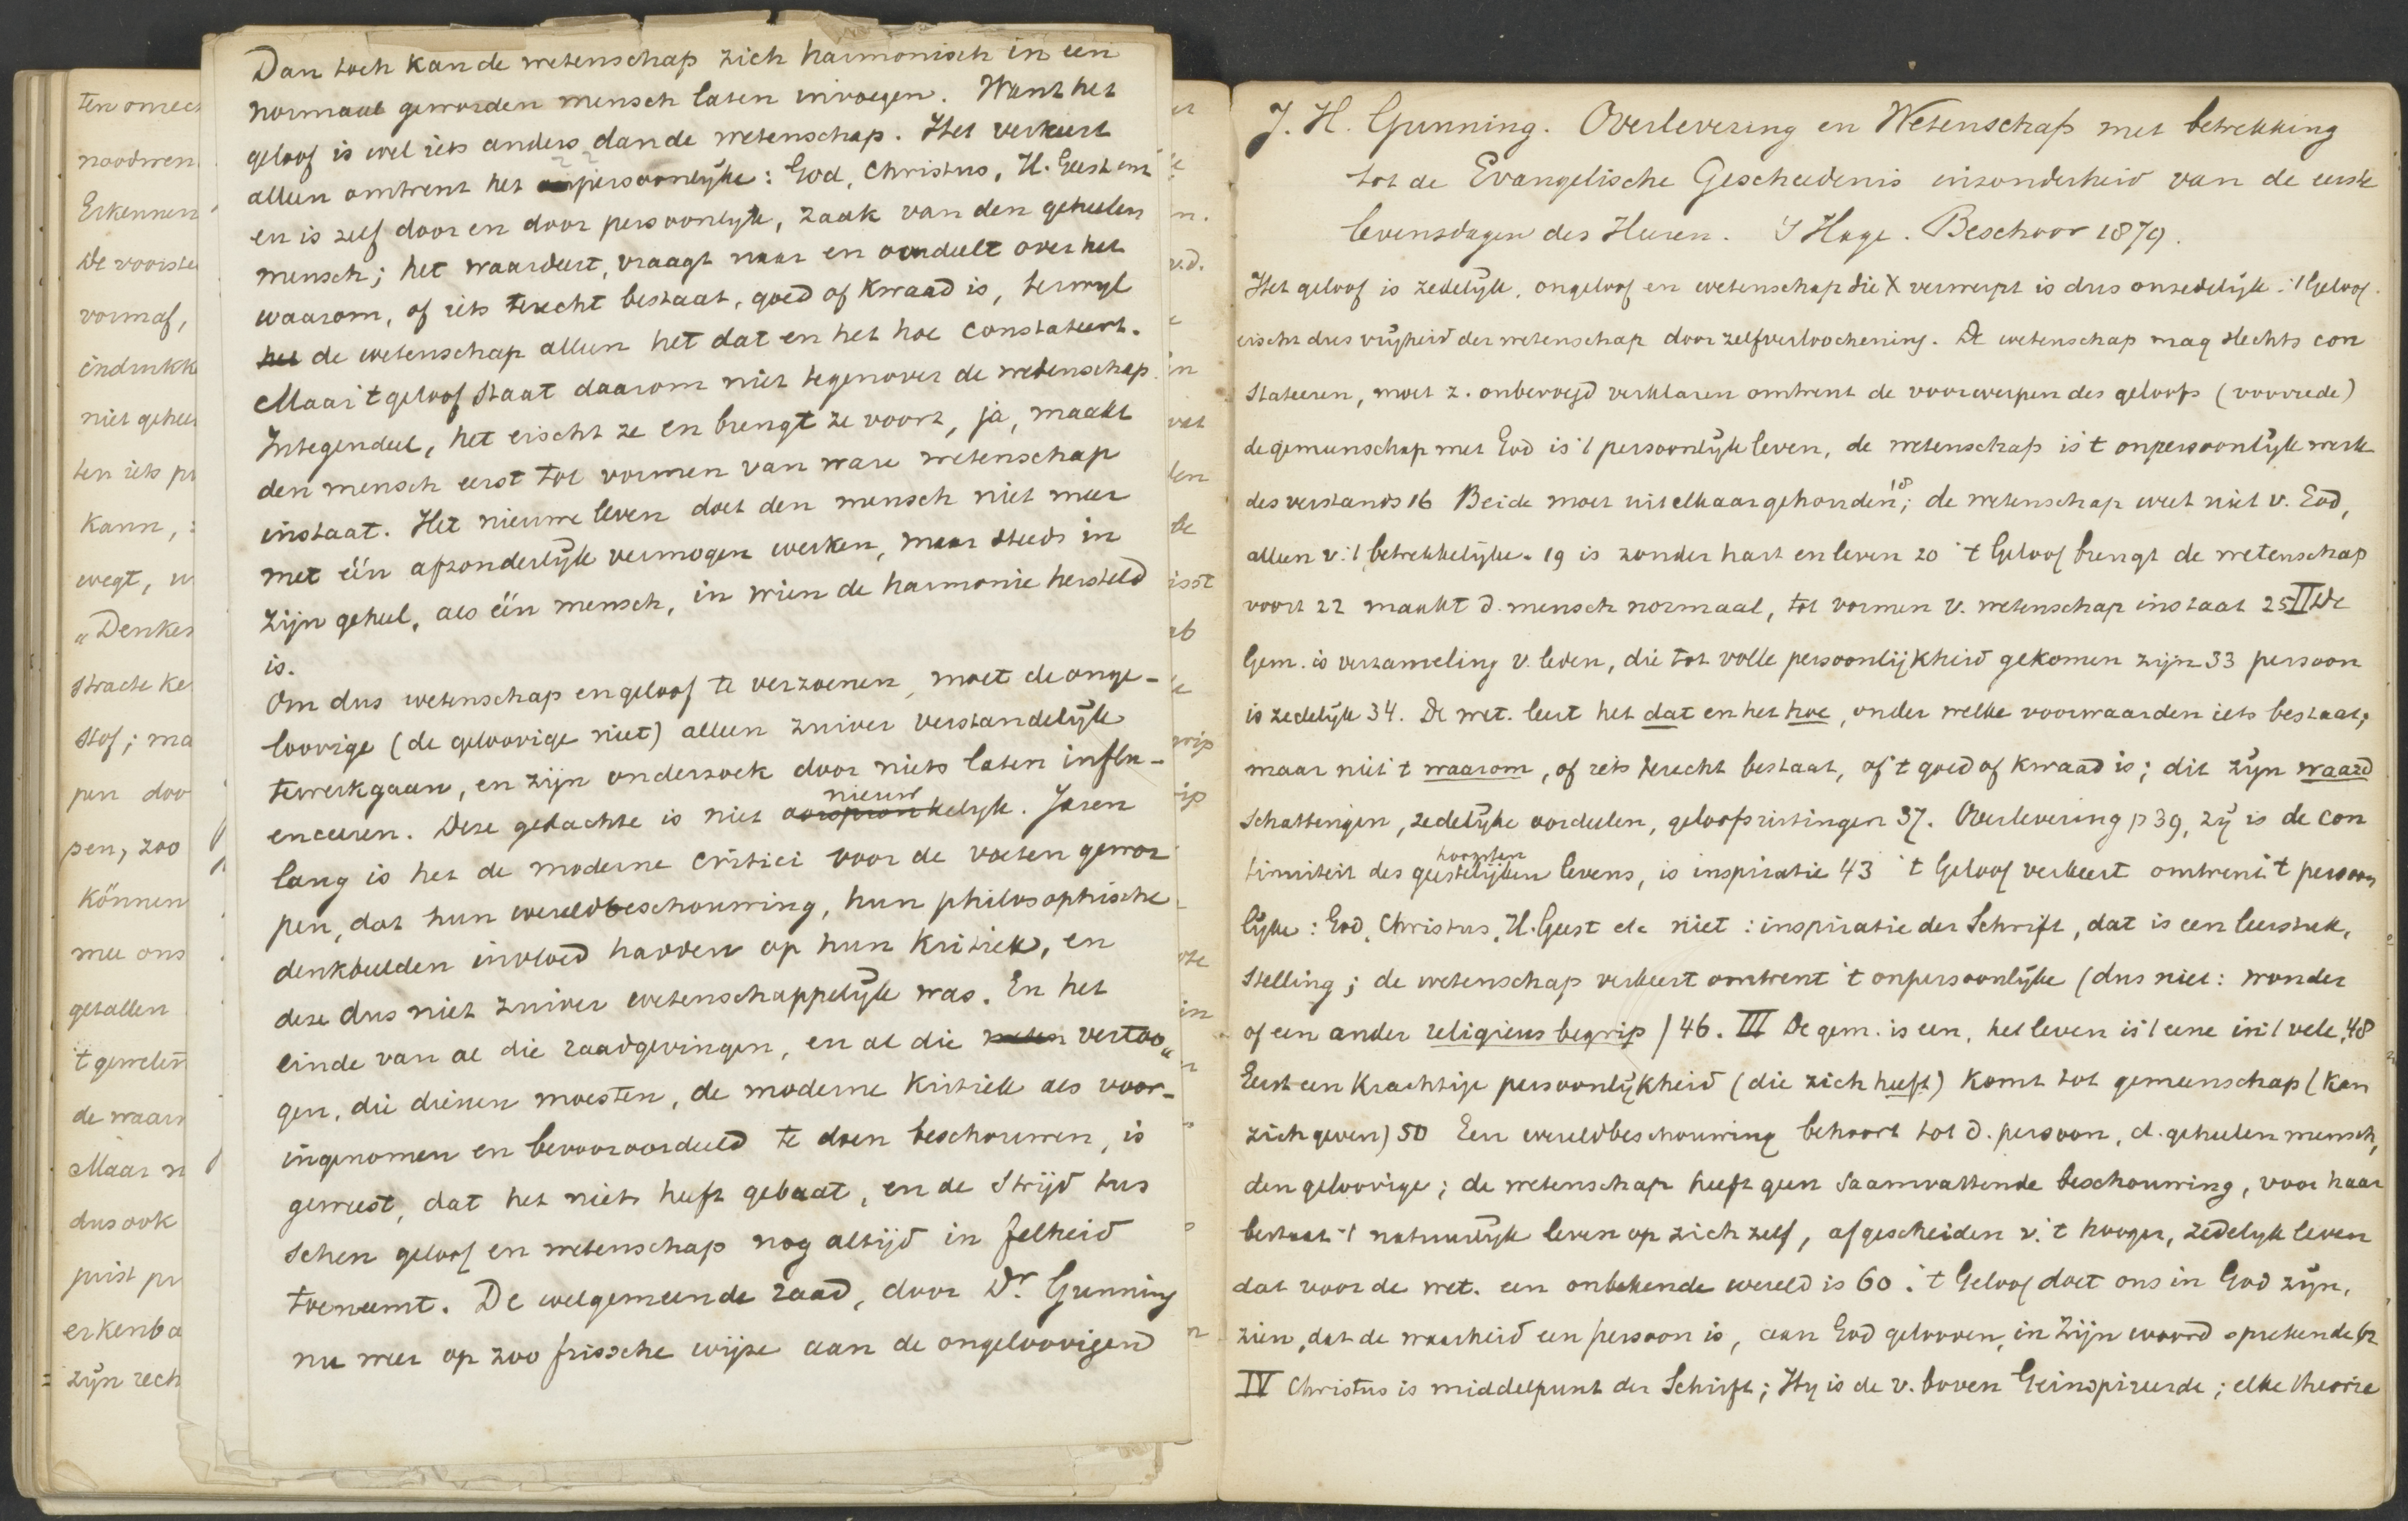 Dan toch kan de wetenschap zich harmonisch in een
normaal geworden mensch laten invoegen. Want het
geloof is wel iets anders dan de wetenschap. Het verkeert
alleen omtrent het persoonlijke: God, Christus, H. Geest enz
en is zelf door en door persoonlijk, zaak van den geheelen
mensch; het waardeert, vraagt naar en oordeelt over het
waarom, of iets terecht bestaat, goed of kwaad is, terwyl
het de wetenschap alleen het dat en het hoe constateert.
Maar 't geloof staat daarom niet tegenover de wetenschap.
Integendeel, het eischt ze en brengt ze voort, ja, maakt
den mensch eerst tot vormen van ware wetenschap
instaat. Het nieuwe leven doet den mensch niet meer
met één afzonderlijk vermogen werken, maar steeds in
zijn geheel, als één mensch, in wien de harmonie hersteld
is.
Om dus wetenschap en geloof te verzoenen, moet de onge-
loovige (de geloovige niet) alleen zuiver verstandelijk
tewerkgaan, en zijn onderzoek door niets laten influ-
enceeren. Deze gedachte is niet oorspronkelyk nieuw. Jaren
lang is het de moderne critici voor de voeten gewor
pen, dat hun wereldbeschouwing, hun philosophische
denkbeelden invloed hadden op hun kritiek, en
deze dus niet zuiver wetenschappelijk was. En het
einde van al die raadgevingen, en al die vertoo„
gen, die dienen moesten, de moderne kritiek als voor-
ingenomen en bevooroordeeld te doen beschouwen, is
geweest, dat het niets heeft gebaat, en de strijd tus
schen geloof en wetenschap nog altijd in felheid
toeneemt. De welgemeende raad, door Dr. Gunning
nu weer op zoo frissche wijze aan de ongeloovigen
ten onrech
noodwen
Erkennen
De voorste
vormaf,
eindrukk
niet gehee
ten iets pr
Kann, :
wegt, w
„Denken
stracte ke
stof; ma
pen doo
pen, zoo
können
mee ons
getallen
't gewelen
de waarn
Maar n
dus ook
juist pr
erkenba
zijn rech
J. H. Gunning. Overlevering en Wetenschap met betrekking
tot de Evangelische Geschiedenis inzonderheid van de eerste
levensdagen des Heeren. 's Hage. Beschoor 1879.
Het geloof is zedelijk, ongeloof en wetenschap die X verwerpt is dus onzedelijk. 't Geloof
eischt dus vrijheid der wetenschap door zelfverloochening. De wetenschap mag slechts con
stateeren, moet z. onbevoegd verklaren omtrent de voorwerpen des geloofs (voorrede)
de gemeenschap met God is 't persoonlijk leven, de wetenschap is 't onpersoonlijk werk
des verstands 16 Beide moet uit elkaar gehouden 18; de wetenschap weet niet v. God,
alleen v. 't betrekkelijke. 19 is zonder hart en leven 20 't Geloof brengt de wetenschap
voort 22 maakt d. mensch normaal, tot vormen v. wetenschap instaat 25 II De
Gem. is verzameling v. leden, die tot volle persoonlijkheid gekomen zijn 33 persoon
is zedelijk 34. De wet. leert het dat en het hoe, onder welke voorwaarden iets bestaat,
maar niet 't waarom, of iets terecht bestaat, of 't goed of kwaad is; dit zijn waard
schattingen, zedelijke oordeelen, geloofsuitingen 37. Overlevering p 39, zij is de con
tinuiteit des geestelijken hoogsten levens, is inspiratie 43 't Geloof verkeert omtrent 't persoon
lijke: God, Christus, H. Geest etc niet: inspiratie der Schrift, dat is een leerstuk,
stelling; de wetenschap verkeert omtrent 't onpersoonlijke (dus niet: wonder
of een ander religieus begrip) 46. III De gem. is een, het leven is 't eene in 't vele. 48
Eerst een krachtige persoonlijkheid (die zich heeft) komt tot gemeenschap (kan
zich geven) 50 Een wereldbeschouwing behoort tot d. persoon, d. geheelen mensch,
den geloovige; de wetenschap heeft geen saamvattende beschouwing, voor haar
bestaat 't natuurlijk leven op zich zelf, afgescheiden v. 't hooger, zedelyk leven
dat voor de wet. een onbekende wereld is 60. 't Geloof doet ons in God zijn,
zien, dat de waarheid een persoon is, aan God gelooven, in Zijn woord sprekende 62
IV Christus is middelpunt der Schrift; Hy is de v. boven Geinspireerde; elke theorie